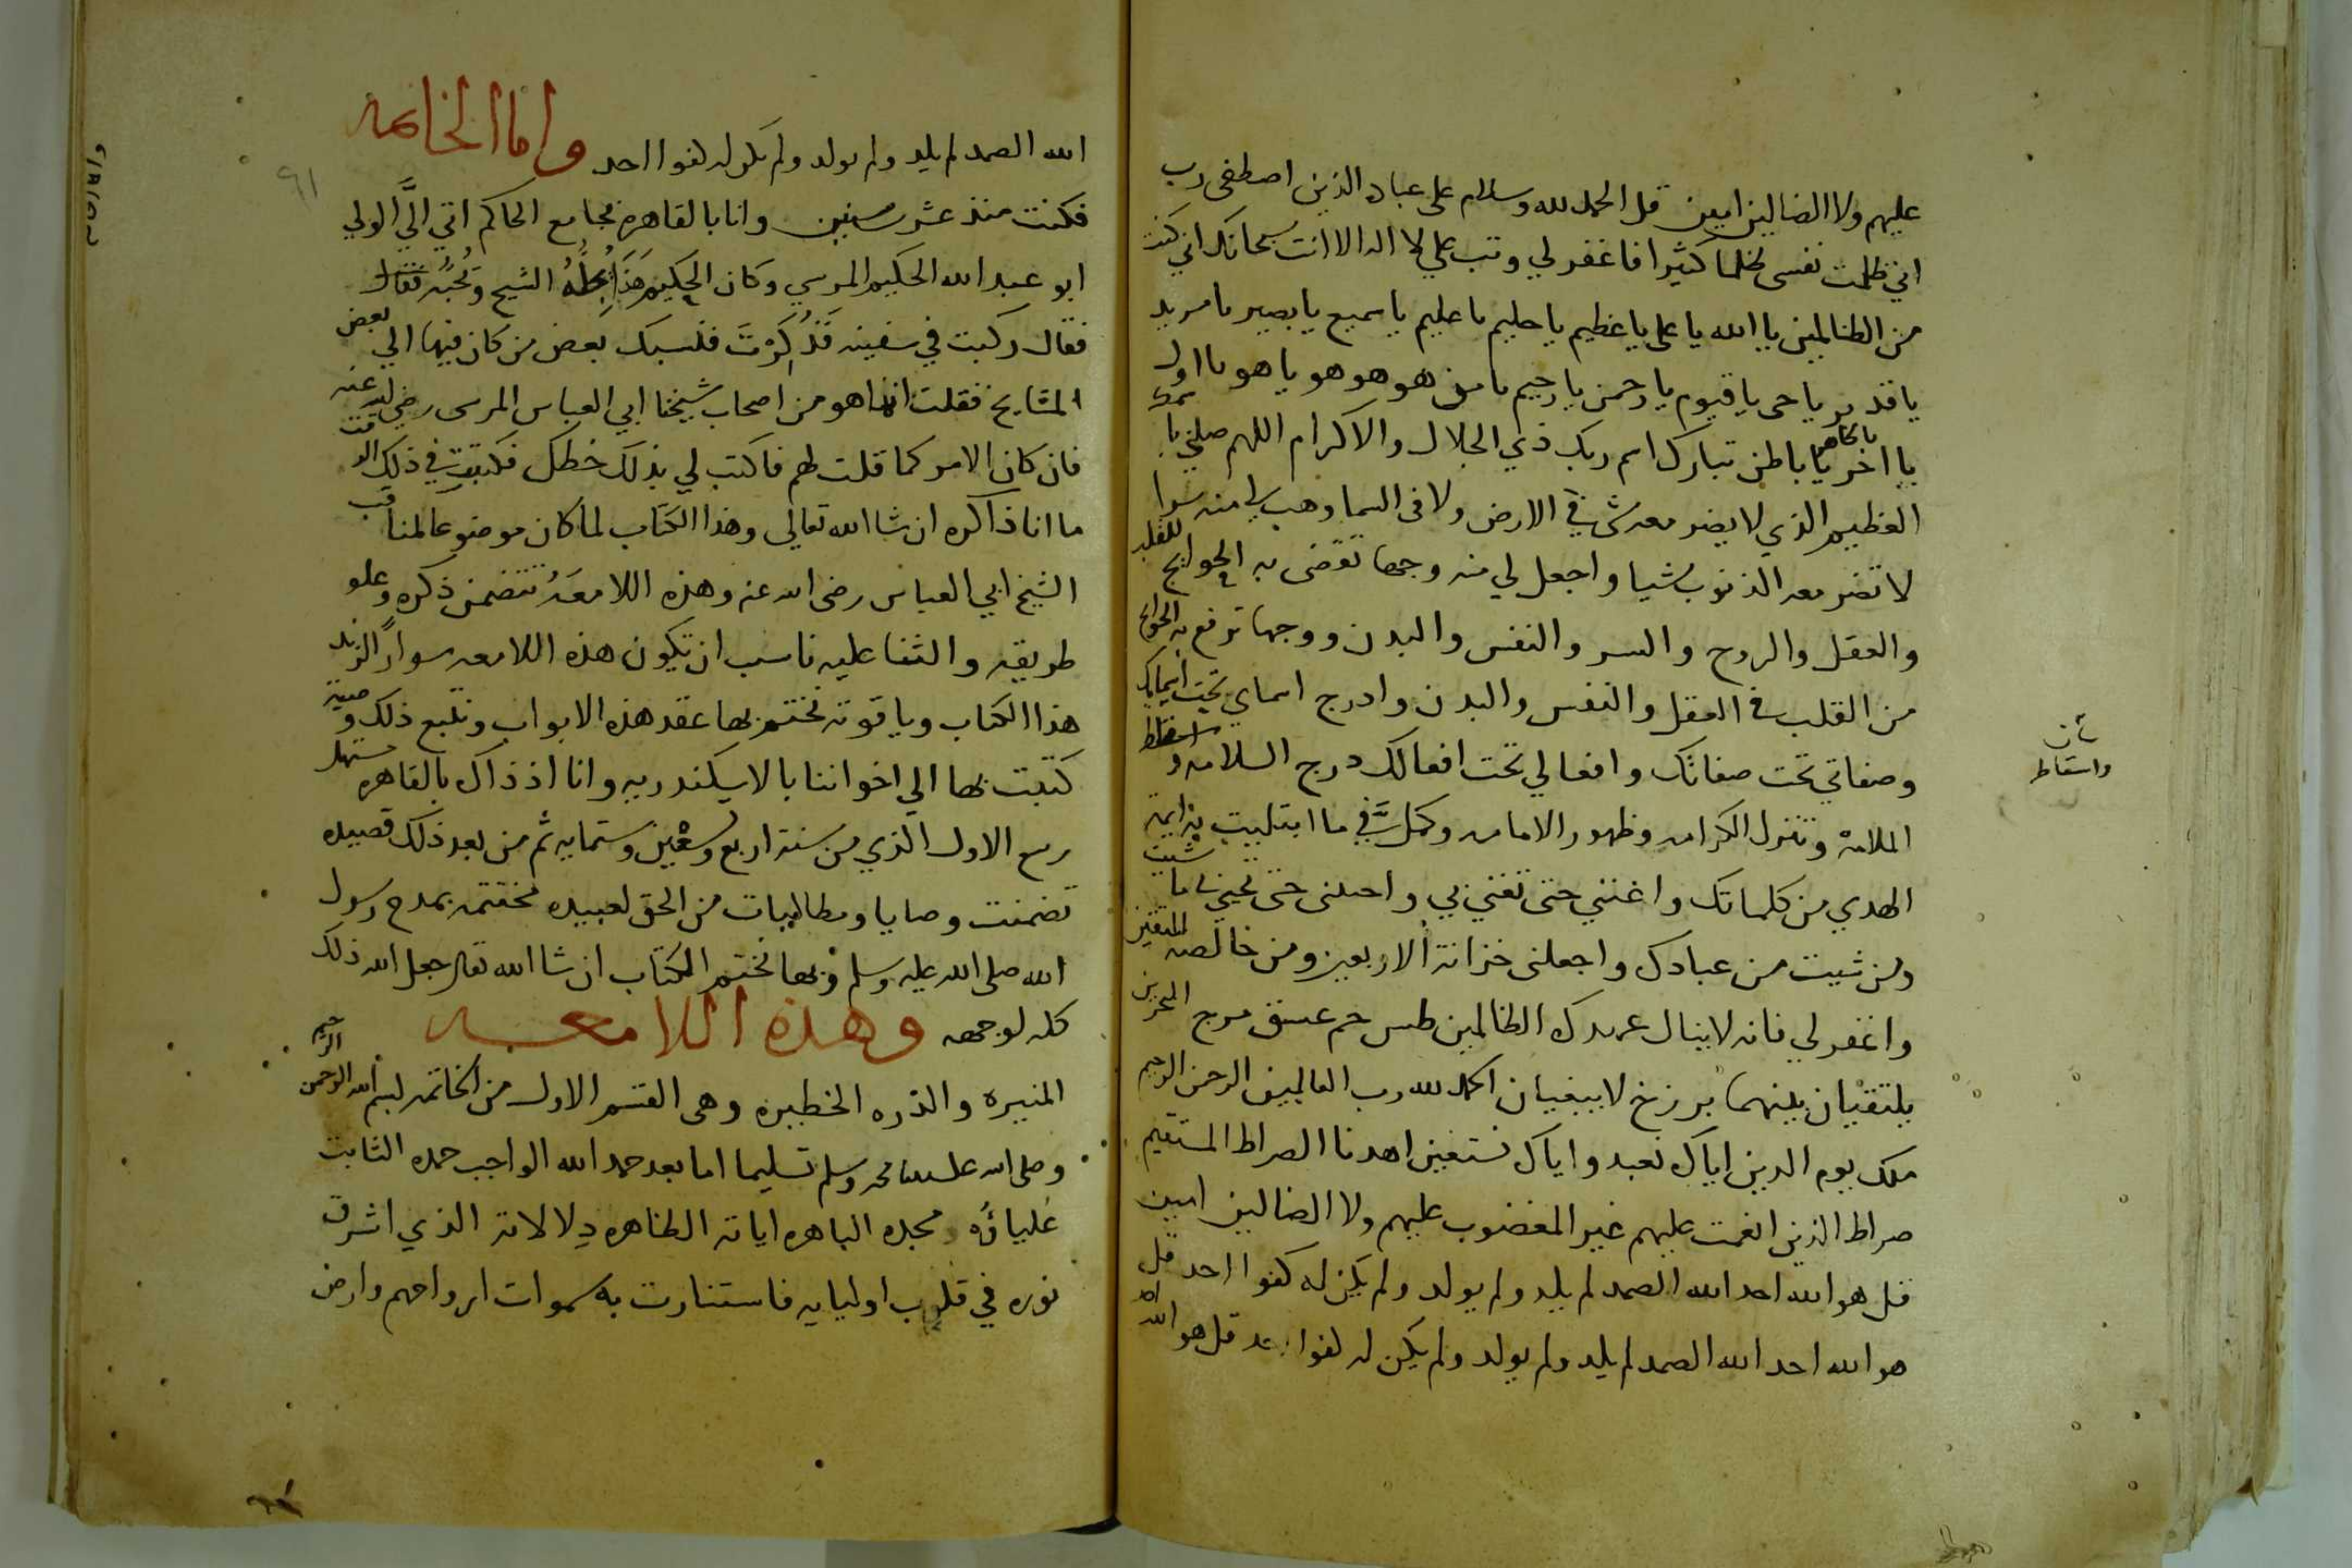 عليهم ولا الضالين امين قل الحمد لله وسلام على عباده الذين اصطفى رب
اني ظلمت نفسي ظلما كثيرا فاغفر لي وتب علي لا اله الا انت سبحانك اني كنت
من الظالمين يا الله يا علي يا عظيم يا حليم يا عليم يا سميع يا بصير يا مريد
يا قدير يا حي يا قيوم يا رحمن يا رحيم يا من هو هو هو يا هو يا اول
يا اخر يا ظاهر يا باطن تبارك اسم ربك ذي الجلال والاكرام اللهم صلني با
العظيم الذي لا يضر معه شي في الارض ولا في السما وهب لي منه سرا
لا تضر معه الذنوب شيا واجعل لي منه وجها تقضى به الحوايج للقلب
والعقل والروح والسر والنفس والبدن ووجها ترفع به الحوايج
من القلب والعقل والنفس والبدن وادرج اسماي تحت اسمايك
وصفاتي تحت صفاتك وافعالي تحت افعالك درج السلامه و
الملامة وتنزل الكرامه وظهور الامامه وكمل في ما ابتليت به ايمة
الهدي من كلماتك واغنني حتى تغني بي واحيني حتى تحيي بي ما شيت
ومن شيت من عبادك واجعلني خزانة الاربعين ومن خالصه المتقين
واغفر لي فانه لا ينال عهدك الظالمين طس حم عسق مرج البحرين
يلتقيان بينهما برزخ لا يبغيان الحمد لله رب العالمين الرحمن الرحيم
ملك يوم الدين اياك نعبد واياك نستعين اهدنا الصراط المستقيم
صراط الذين انعمت عليهم غير المغضوب عليهم ولا الضالين امين
قل هو الله احد الله الصمد لم يلد ولم يولد ولم يكن له كفوا احد قل
هو الله احد الله الصمد لم يلد ولم يولد ولم يكن له كفوا احد قل هو الله احد
واسقاط
الله الصمد لم يلد ولم يولد ولم يكن له كفوا احد واما الخاتمه
فكنت منذ عشر سنين وانا بالقاهره بجامع الحاكم اتي اليَّ الولي
ابو عبد الله الحكيم المرسي وكان الحكيم هذا يجله الشيخ ويحبه فقال
فقال ركبت في سفينه فذكرت فنسبك بعض من كان فيها الي بعض
المشايخ فقلت انما هو من اصحاب شيخنا ابي العباس المرسي رضي الله عنه
فان كان الامر كما قلت لهم فاكتب لي بذلك خطك فكتبت في ذلك الوقت
ما انا ذاكره ان شا الله تعالي وهذا الكتاب لما كان موضوعا لمناقب
الشيخ ابي العباس رضي الله عنه وهذه اللامعة تتضمن ذكره وعلو
طريقه والثنا عليه ناسب ان تكون هذه اللامعه سوارا لزند
هذا الكتاب وياقوته نختم بها عقد هذه الابواب ونتبع ذلك وصية
كتبت بها الي اخواننا بالاسكندريه وانا اذ ذاك بالقاهره مستهل
ربيع الاول الذي من سنة اربع وتسعين وستمايه ثم من بعد ذلك قصيده
تضمنت وصايا ومطالبات من الحق لعبيده مختتمه بمدح رسول
الله صلى الله عليه وسلم وبها نختم الكتاب ان شا الله تعالى جعل الله ذلك
كله لوجهه وهذه اللامعه
المنيره والدره الخطيره وهي القسم الاول من الخاتمه بسم الله الرحمن الرحيم
وصلى الله على سيدنا محمد وسلم تسليما اما بعد حمد الله الواجب حمده الثابت
علياؤه مجده الباهره اياته الظاهره دلالاته الذي اشرق
نوره في قلوب اوليايه فاستنارت به سموات ارواحهم وارض
٩١